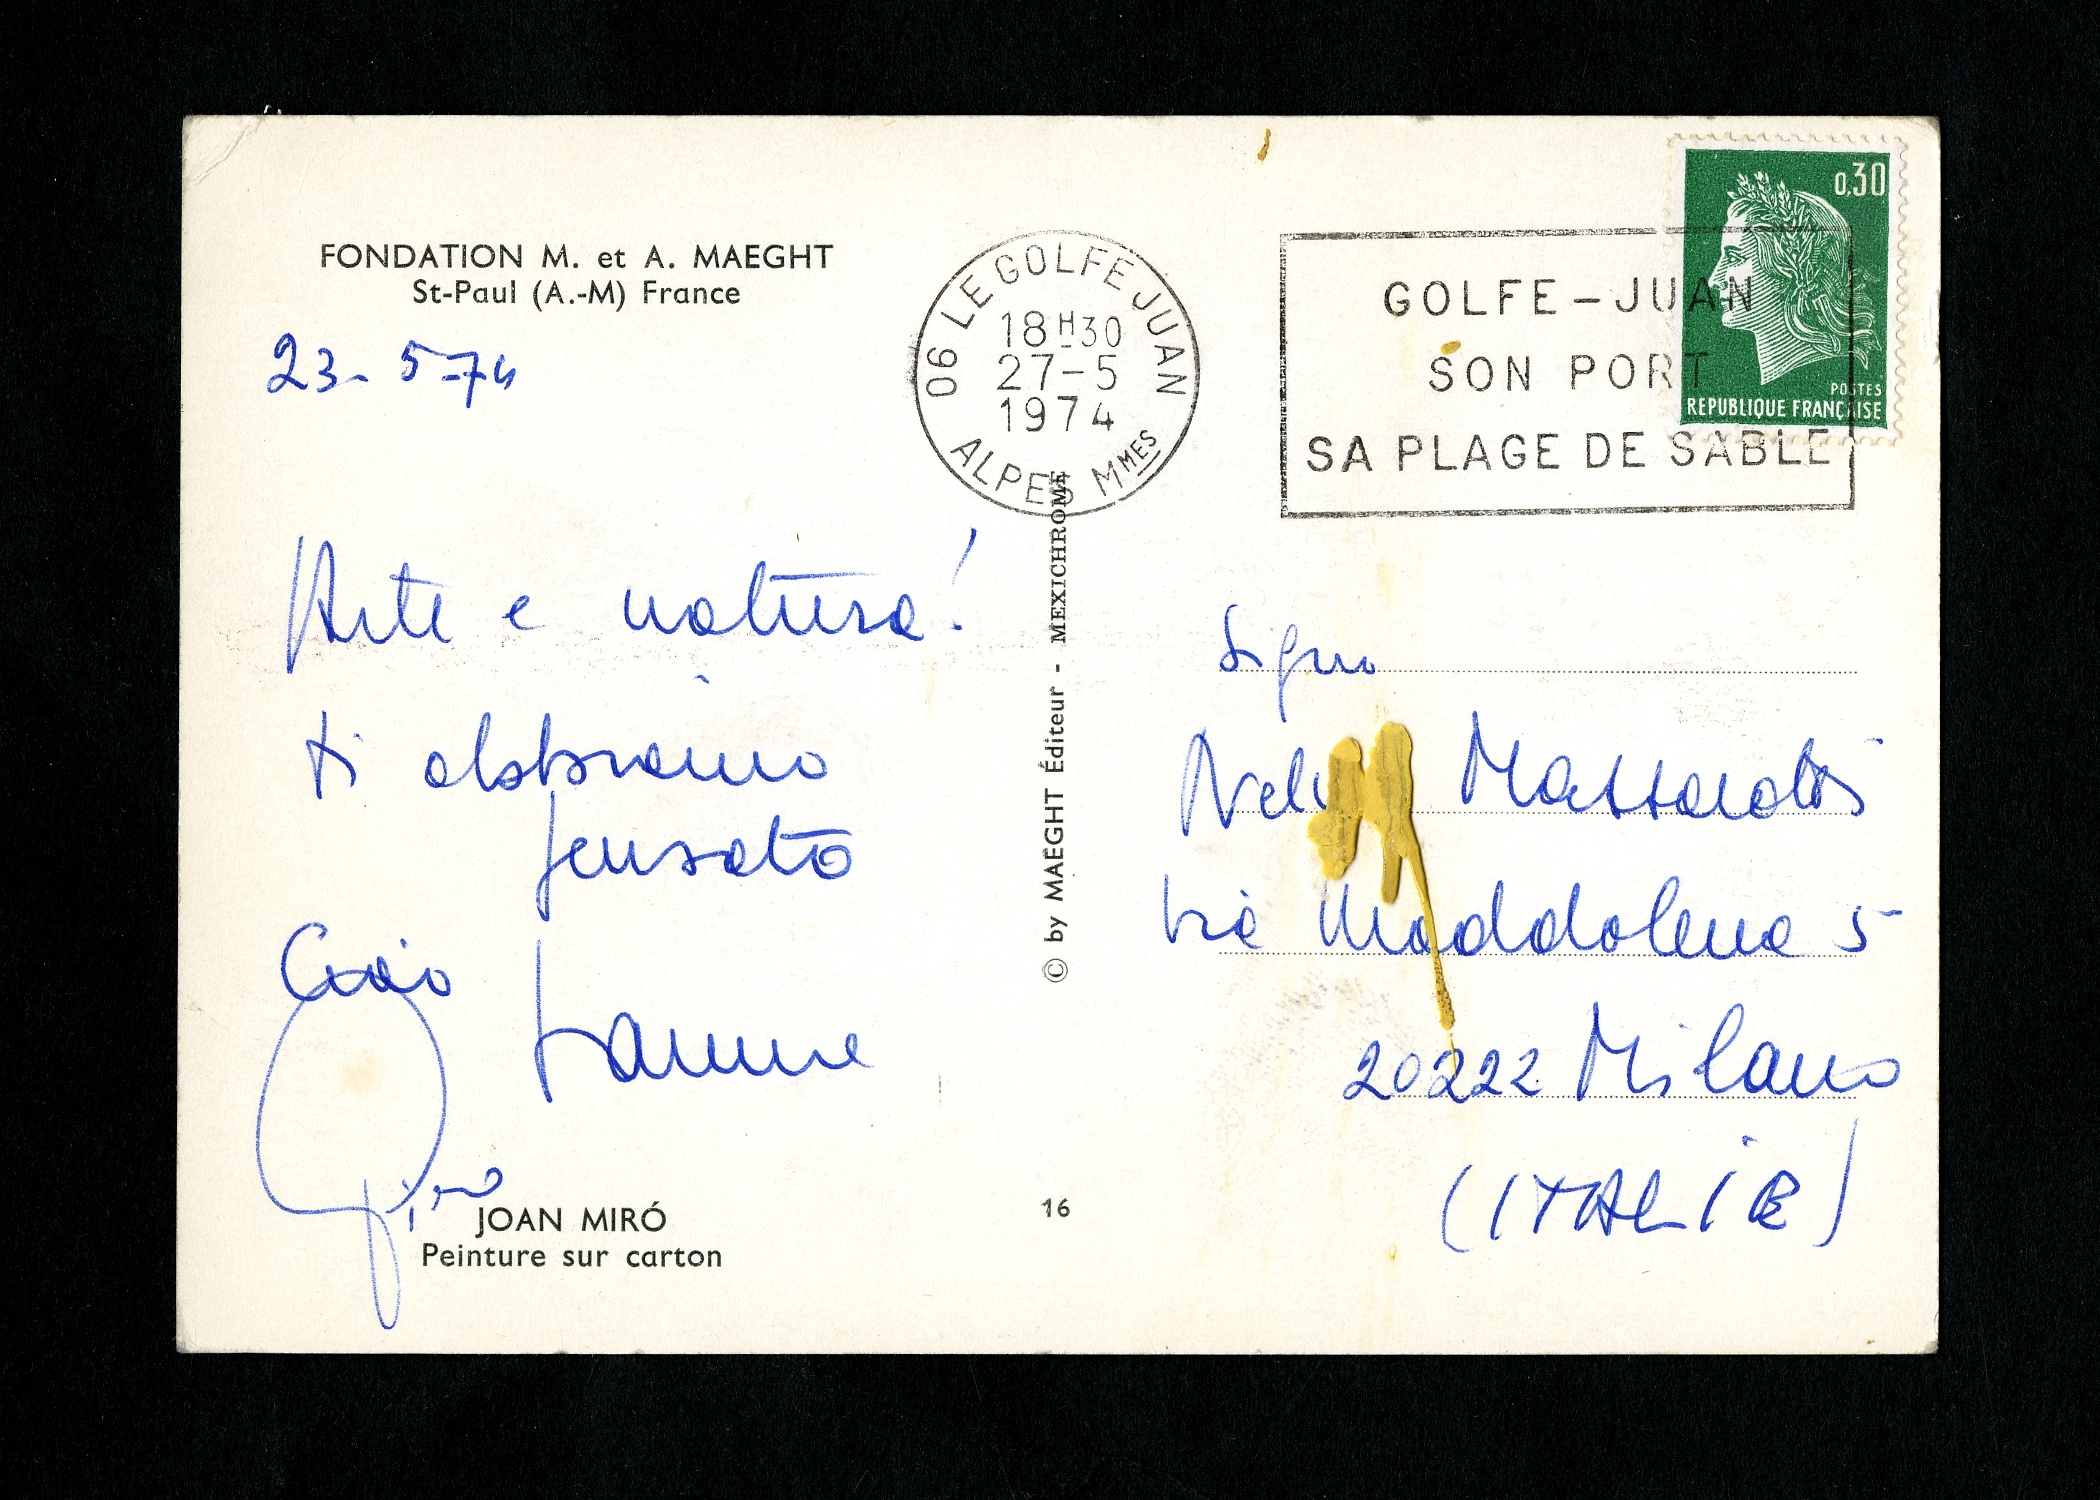 FONDATION M. et A. MAEGHT
St-Paul (A.-M) France
23-5-74
Arte e natura!
ti abbiamo
pensato
Ciao
Gino
JOAN MIRÓ
Peinture sur carton
© by MAEGHT Éditeur - MEXICHROME
16
06 LE GOLFE JUAN
18H30
27-5
1974
ALPES MMES
GOLFE-JUAN
SON PORT
SA PLAGE DE SABLE
0,30
POSTES
REPUBLIQUE FRANÇAISE
via Maddalena 5
20222 Milano
(ITALIE)